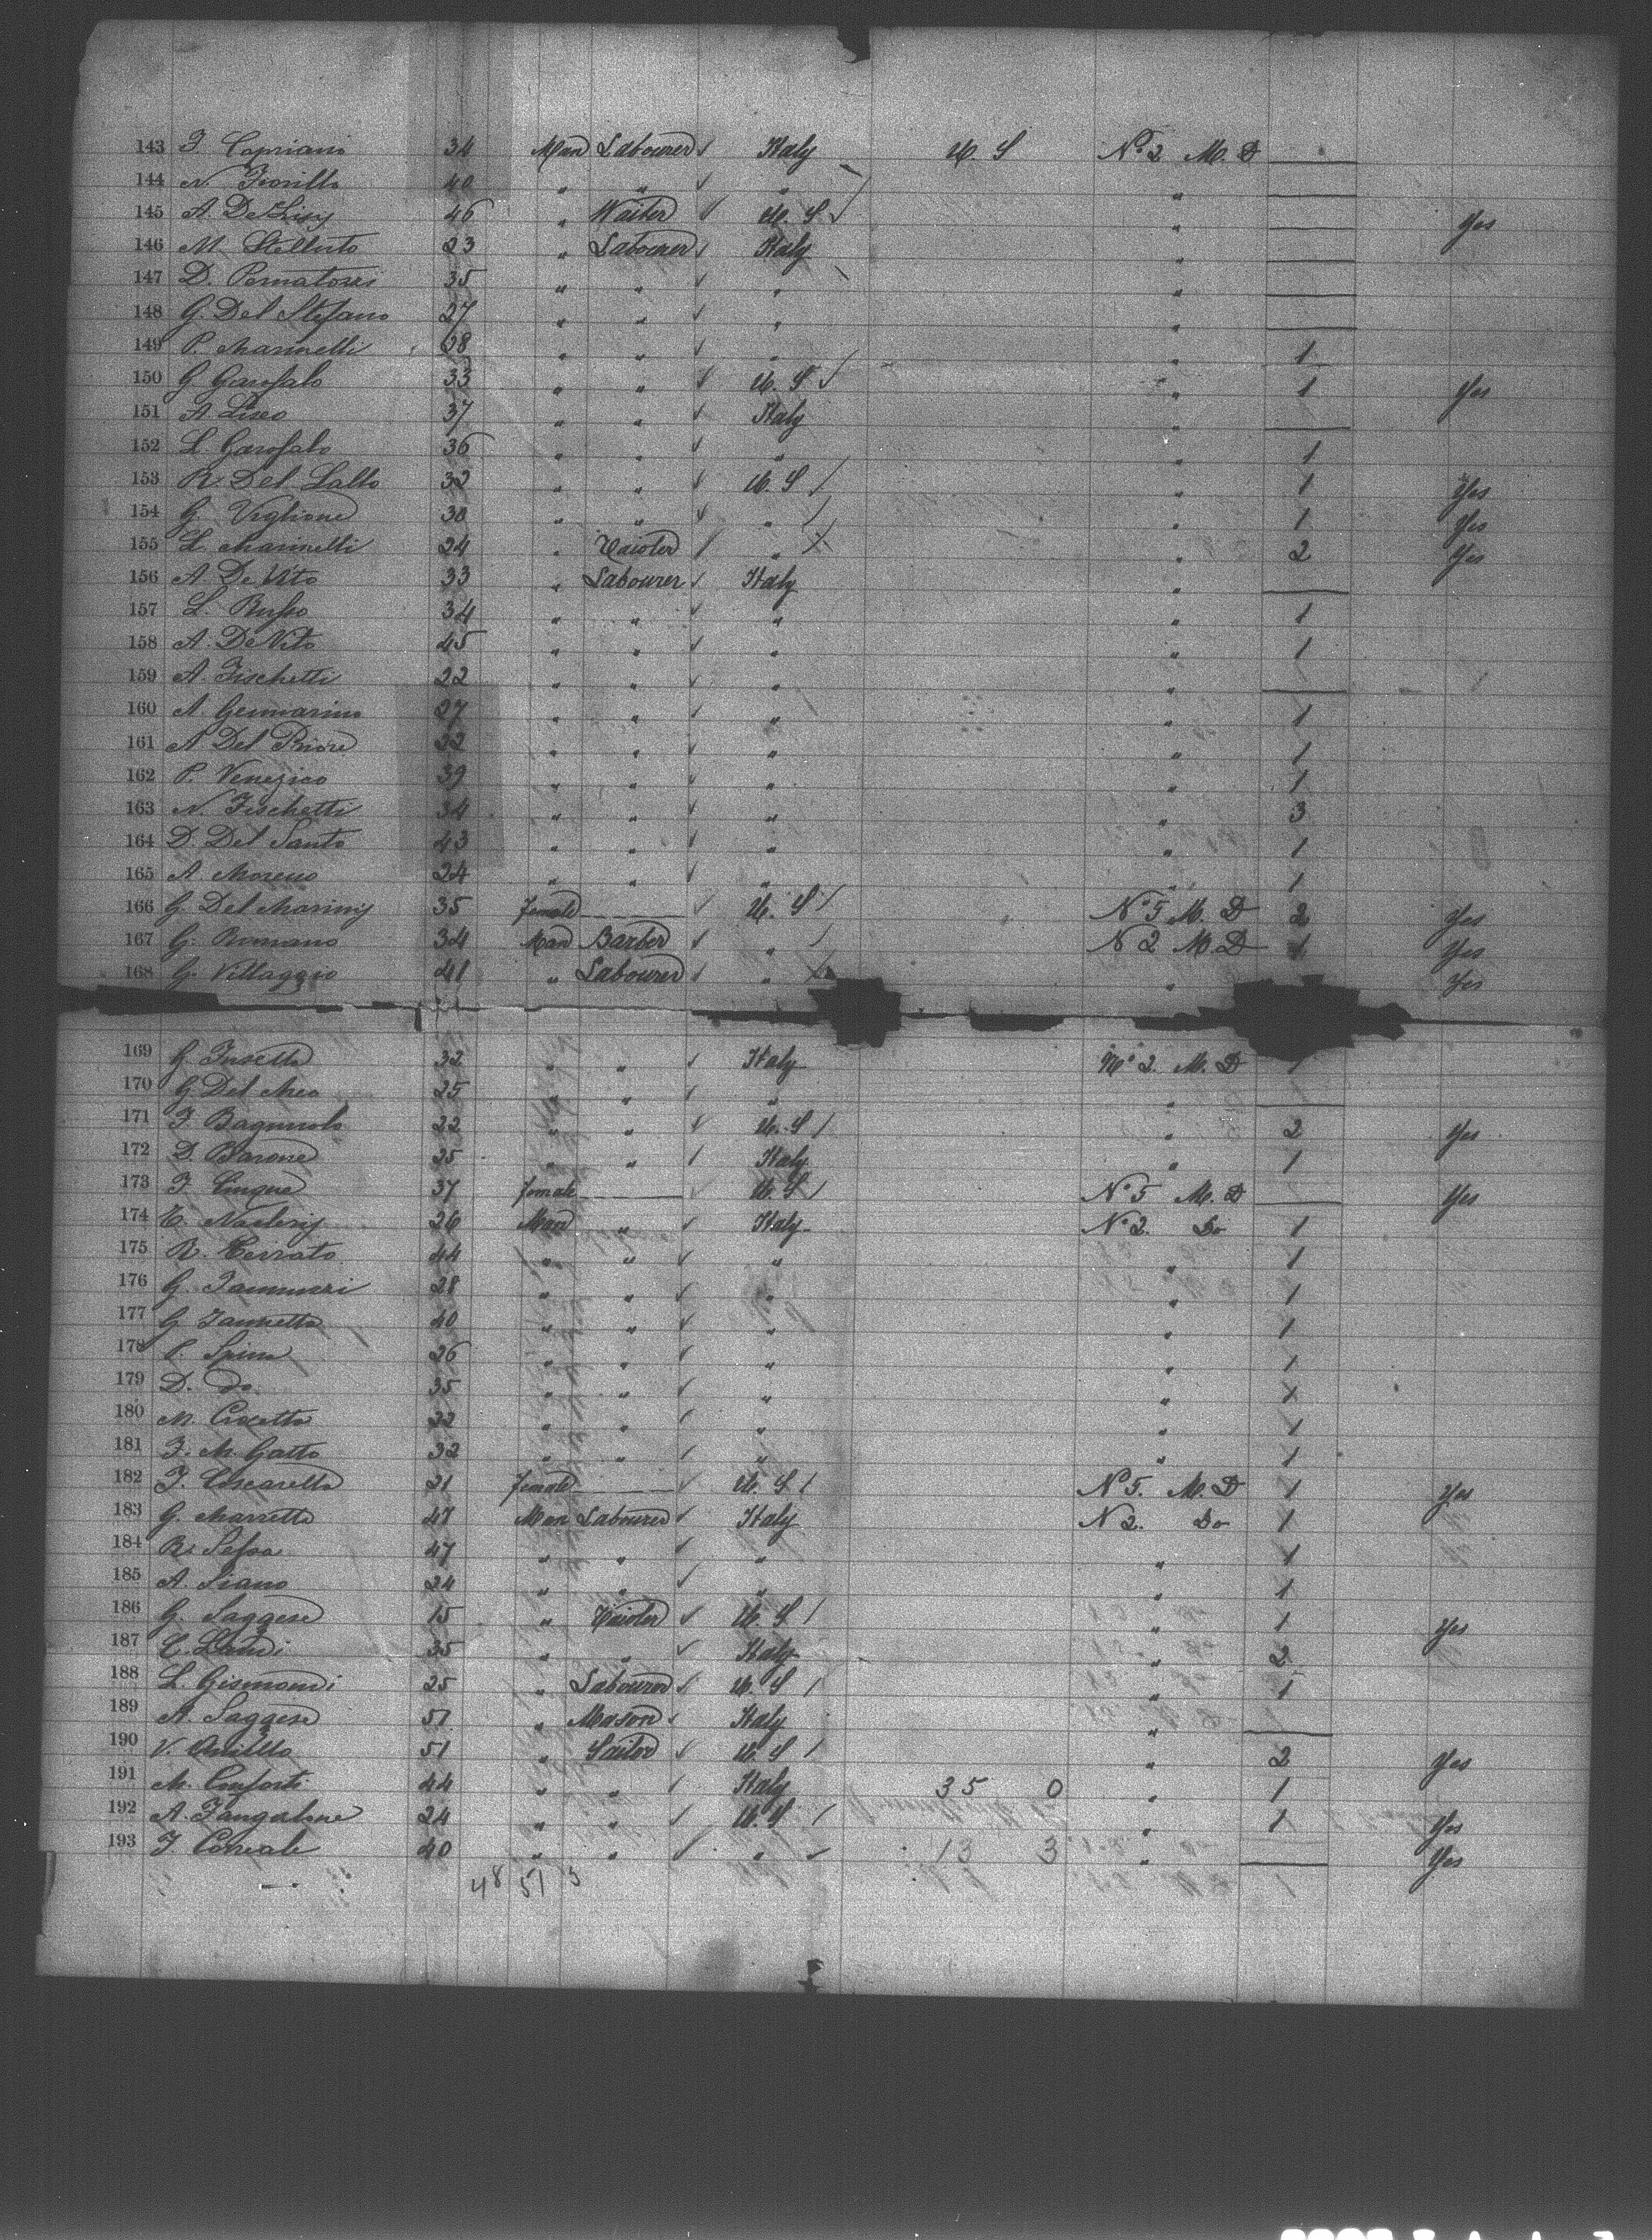 143 F. Capriano 34 Man Labourer ✓ Italy U. S No 2. M. D —
144 N. Fiorillo 40 " " ✓ " " —
145 A. De 46 " Waiter ✓ U. S ✓ " — Yes
146 M. Stelluto 23 " Labourer ✓ Italy " —
147 D. 35 " " ✓ " " —
148 G. Del Stefano 27 " " ✓ " " —
149 P. Marinelli 28 " " ✓ " " 1
150 G Garofalo 33 " " ✓ U. S ✓ " 1 Yes
151 A Liseo 37 " " ✓ Italy " —
152 L. Garofalo 36 " " ✓ " " 1
153 R. Del Lallo 32 " " ✓ U. S / " 1 Yes
154 G. Viglione 30 " " ✓ " / " 1 Yes
155 L. Marinelli 24 " Tailor / " X " 2 Yes
156 A. De Vito 33 " Labourer ✓ Italy " —
157 L. Russo 34 " " ✓ " " 1
158 A. De Vito 45 " " ✓ " " 1
159 A. Fischetti 22 " " ✓ " " —
160 A. Gennarino 27 " " ✓ " " 1
161 A Del Priore 22 " " ✓ " " 1
162 P. Venezico 39 " " ✓ " " 1
163 N. Fischetti 34 " " ✓ " " 3
164 D. Del Santo 43 " " ✓ " " 1
165 A. Moreno 24 " " ✓ " " 1
166 G. Del Mariny 35 female — ✓ U. S / No 5 M. D 2 Yes
167 G. Romano 34 Man Barber ✓ " / N 2 M. D 1 Yes
168 G. Villaggio 41 " Labourer ✓ " " Yes
169 G. Fusella 32 " " ✓ Italy No 2. M. D 1
170 G Del Meo 25 " " ✓ " " —
171 F. Bagnuolo 22 " " ✓ U. S / " 2 Yes
172 D. Barone 25 " " / Italy " 1
173 F. Cinque 37 female — ✓ U. S / No 5 M. D — Yes
174 26 Man " ✓ Italy No 2. Do 1
175 R. Cerrato 44 " " ✓ " " 1
176 G. 28 " " ✓ " " 1
177 G Iannetta 40 " " ✓ " " 1
178 P. Spina 26 " " ✓ " " 1
179 D. do 35 " " ✓ " " 1
180 M. Crocetta 22 " " ✓ " " 1
181 F. M. Gatto 32 " " ✓ " " 1
182 F. Coscarella 21 female — ✓ U. S / No 5. M. D 1 Yes
183 G. Marretta 47 Man Labourer ✓ Italy N 2. Do 1
184 R. Sessa 47 " " ✓ " " 1
185 A. Siano 24 " " ✓ " " 1
186 G. Saggese 15 " Tailor ✓ U. S / " 1 Yes
187 C. Landi 35 " " ✓ Italy " 2
188 L. Gismondi 25 " Labourer ✓ U. S / " 1
189 A. Saggese 51 " Mason ✓ Italy " —
190 V. Aniello 51 " Sailor ✓ U. S / " 2 Yes
191 M. Conforti 44 " " ✓ Italy 35 0 " 1
192 A. 24 " " ✓ U. S / " 1 Yes
193 F. Correale 40 " " ✓ " ✓ 13 3 " — Yes
48 51 3